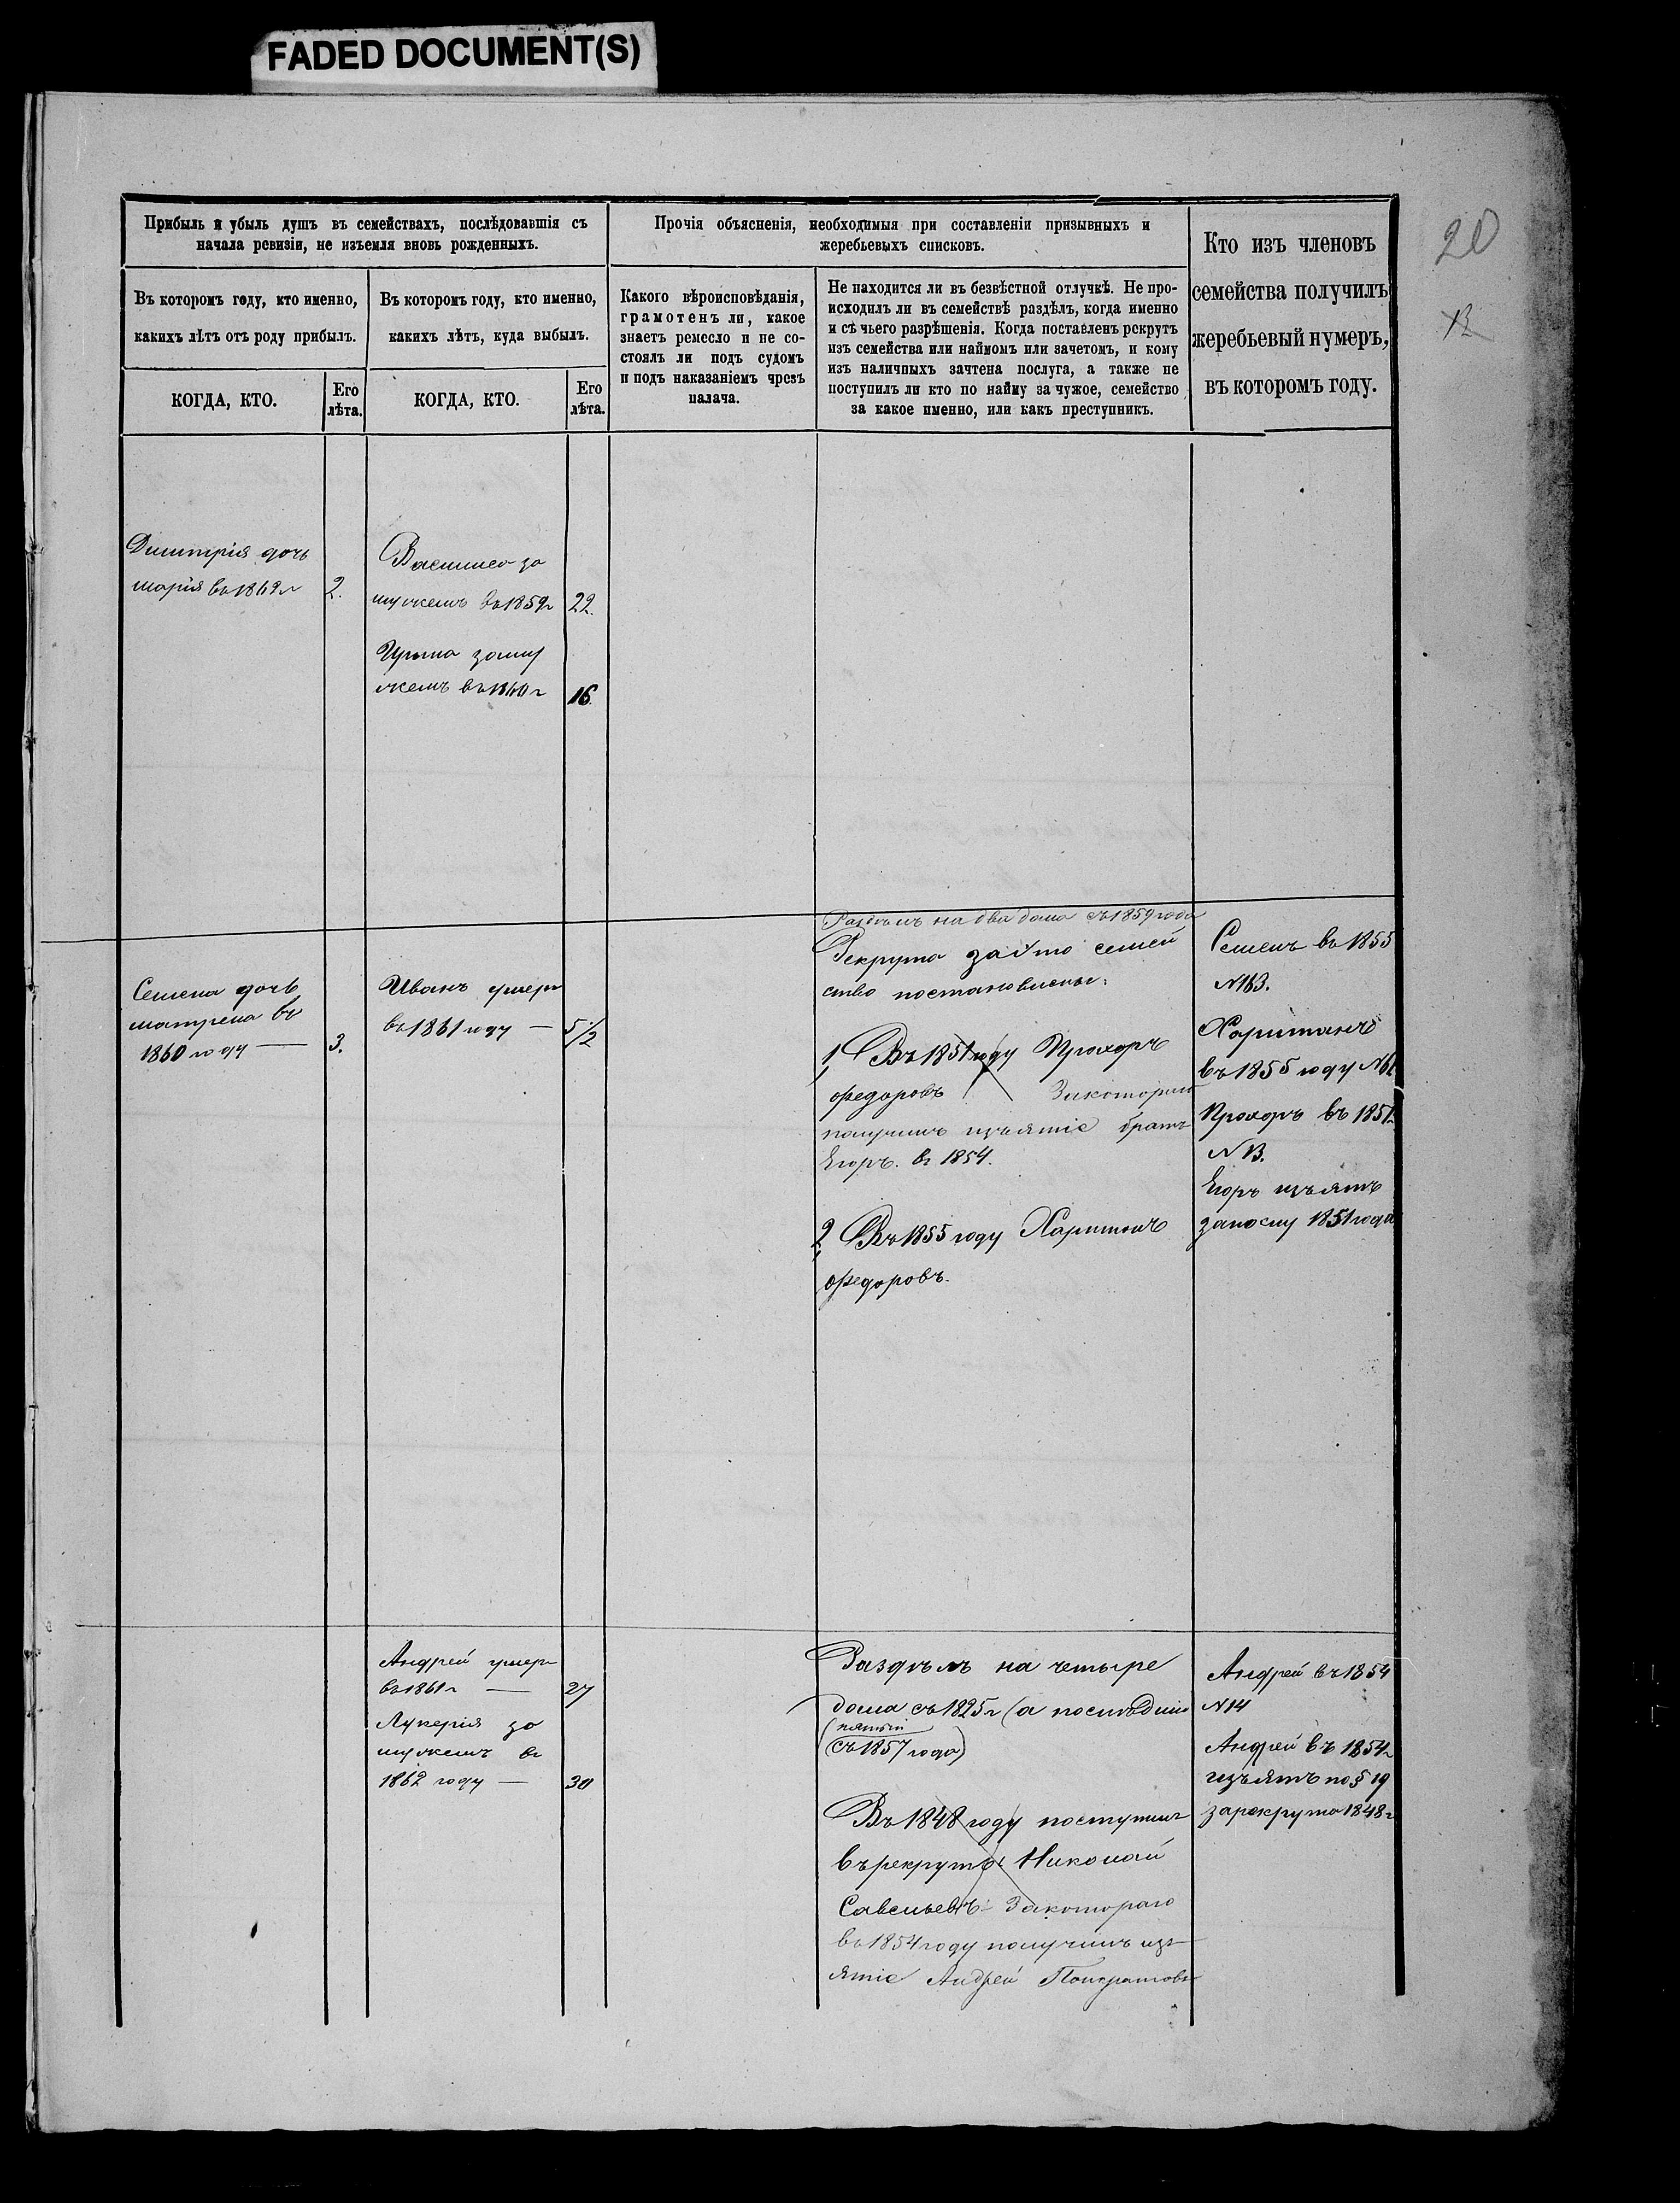 FADED DOCUMENT(S)
20
Прибыль и убыль душъ въ семействахъ, послѣдовавшія съ
начала ревизіи, не изъемля вновь рожденныхъ.
Прочія объясненія, необходимыя при составленіи призывныхъ и
жеребьевыхъ списковъ.
Кто изъ членовъ
семейства получилъ
жеребьевый нумеръ,
въ которомъ году.
Въ которомъ году, кто именно,
какихъ лѣтъ отъ роду прибылъ.
Въ которомъ году, кто именно,
какихъ лѣтъ, куда выбылъ.
Какого вѣроисповѣданія,
грамотенъ ли, какое
знаетъ ремесло и не со-
стоялъ ли подъ судомъ
и подъ наказаніемъ чрезъ
палача.
Не находится ли въ безвѣстной отлучкѣ. Не про-
исходилъ ли въ семействѣ раздѣлъ, когда именно
и съ чьего разрѣшенія. Когда поставленъ рекрутъ
изъ семейства или наймомъ или зачетомъ, и кому
изъ наличныхъ зачтена послуга, а также не
поступилъ ли кто по найму за чужое, семейство
за какое именно, или какъ преступникъ.
КОГДА, КТО.
Его
лѣта.
КОГДА, КТО.
Его
лѣта.
Димитрія дочь
марія въ 1862г
2.
за
мужемъ въ 1859г
22.
Ирина заму
жемъ въ 1860г
16.
Семена дочь
матрена въ
1860 году —
3.
Иванъ умеръ
въ 1861 году —
5/2
Раздѣлъ на два дома съ 1859 года
Рекрута за это семей
ство
1, Въ 1851 году Прохоръ
Федоровъ За котораго
получилъ изъятіе братъ
Егоръ. въ 1854.
2, Въ 1855 году Харитонъ
Федоровъ.
Семенъ въ 1855
N163.
Харитонъ
въ 1855 году
Прохоръ въ 1851г
N13.
Егоръ изъятъ
1851 года
Андрей умеръ
въ 1861г —
27
Лукерія за
мужемъ въ
1862 году —
30
Раздѣлъ на четыре
дома съ 1825г (а послѣдній
пятый
съ 1857 года)
Въ 1848 году поступилъ
въ рекруты Николай
Савельевъ За котораго
въ 1854 году получилъ изъ
ятіе Андрей Понкратовъ
Андрей въ 1854
N14
Андрей въ 1854г
изъятъ по § 19
за рекрута 1848г